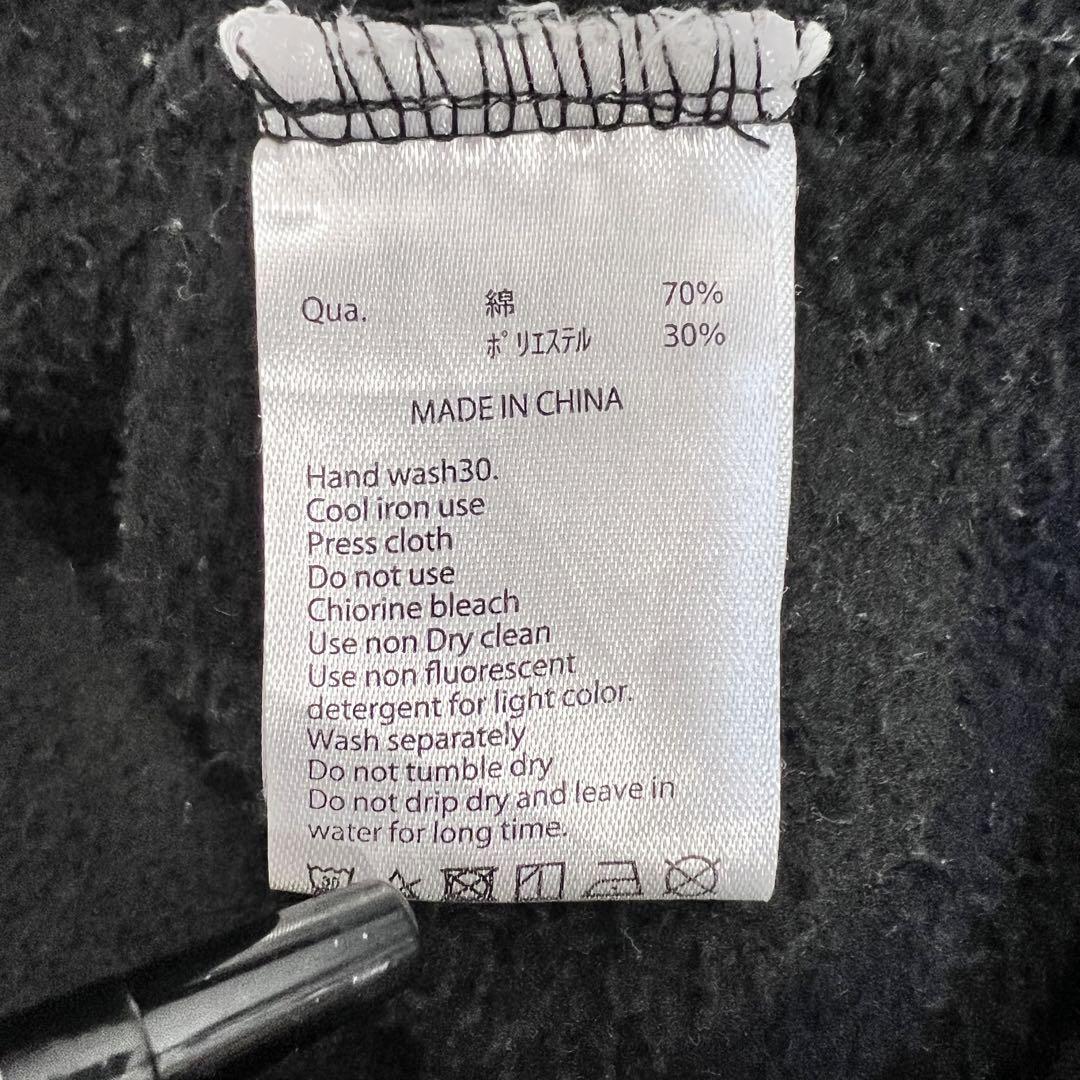 Qua. 綿 70%
ポリエステル 30%
MADE IN CHINA
Hand wash30.
Cool iron use
Press cloth
Do not use
Chiorine bleach
Use non Dry clean
Use non fluorescent
detergent for light color.
Wash separately
Do not tumble dry
Do not drip dry and leave in
water for long time.
30